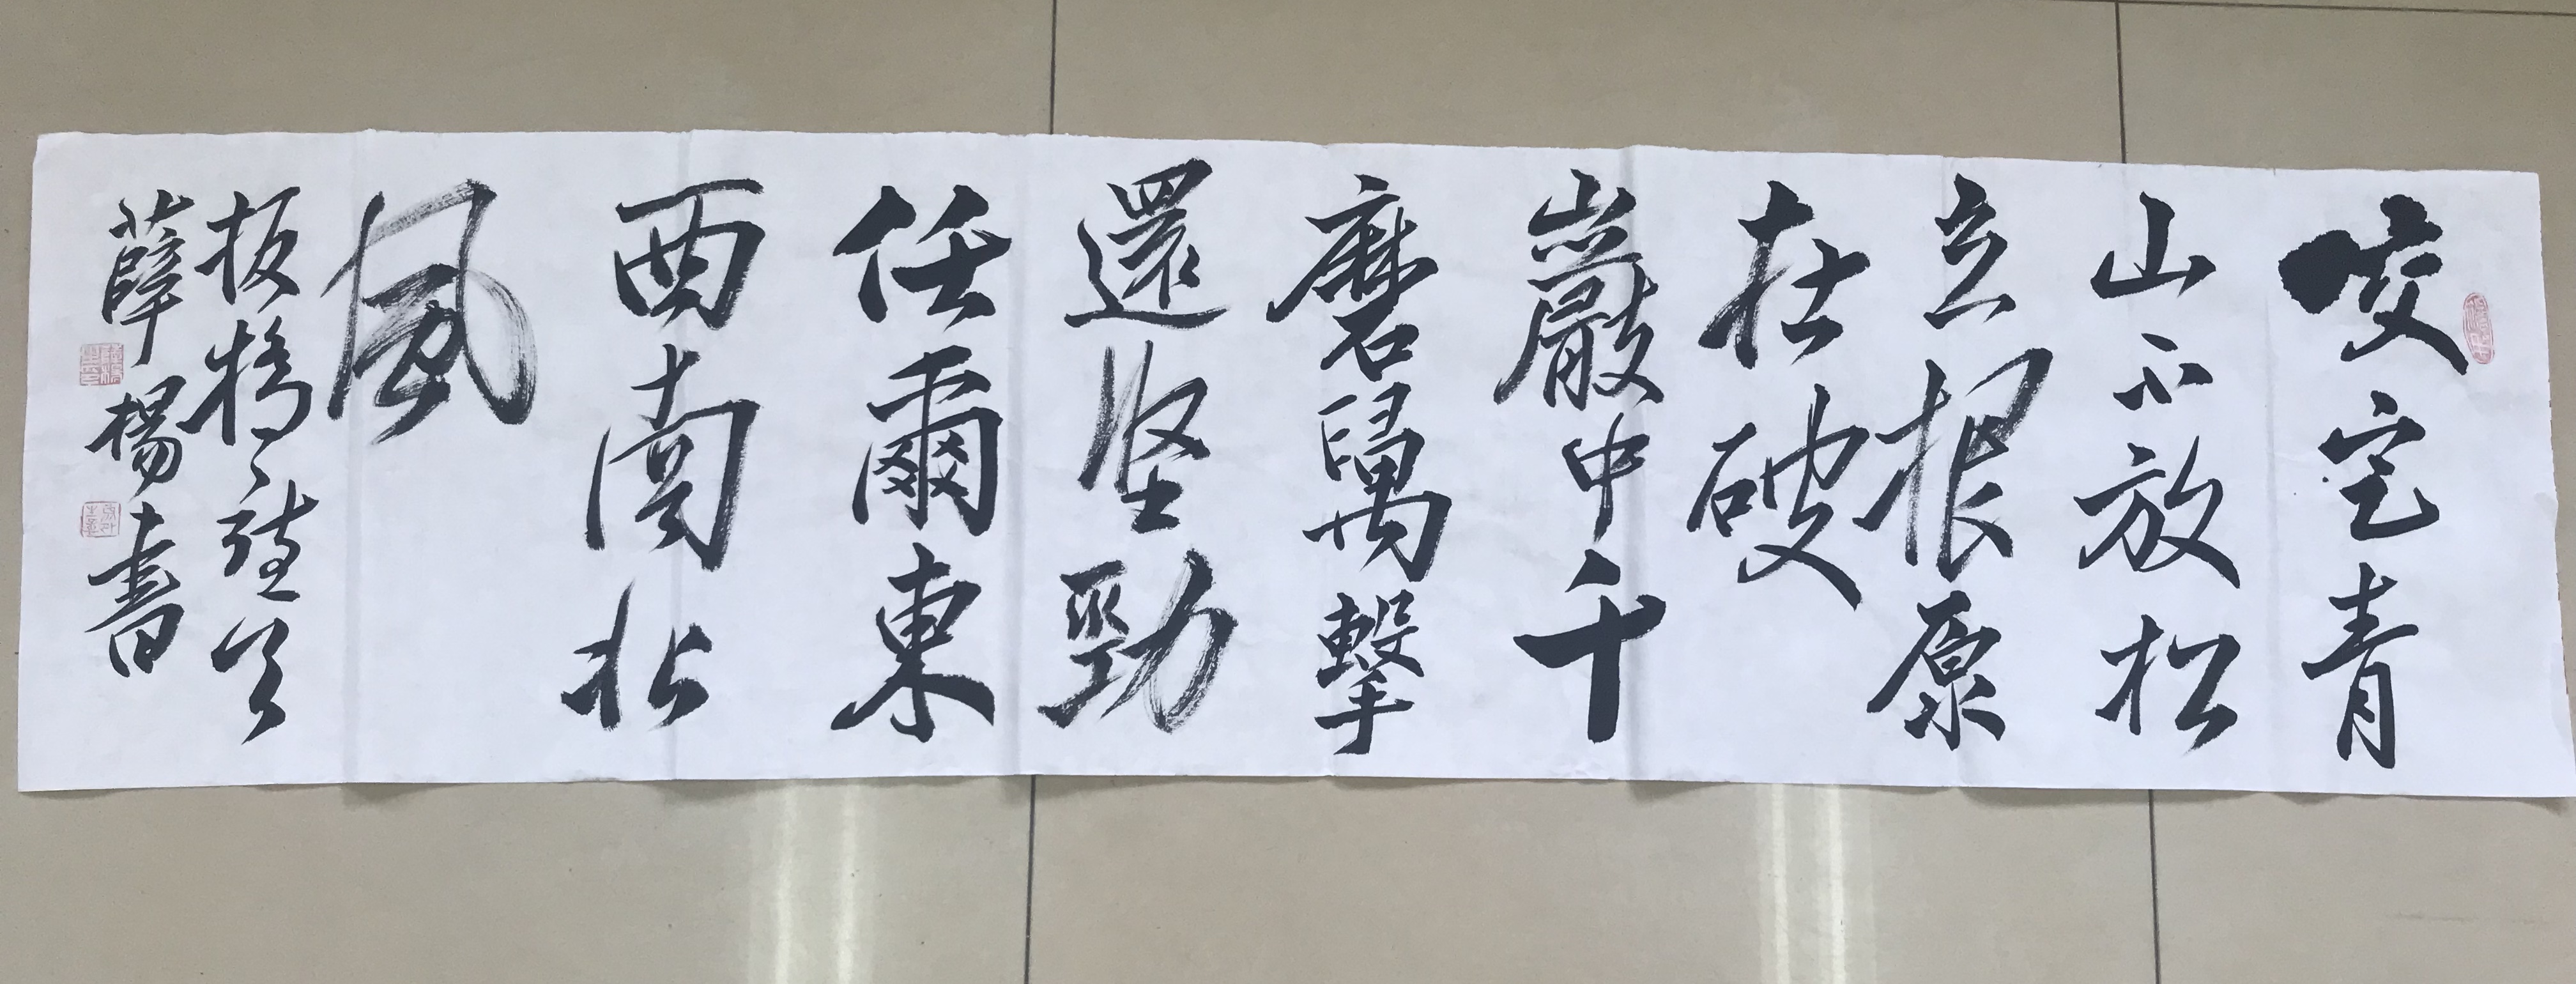 咬定青
山不放松
立根原
在破
巖中千
磨萬擊
還坚勁
任爾東
西南北
風
板橋
薛楊書